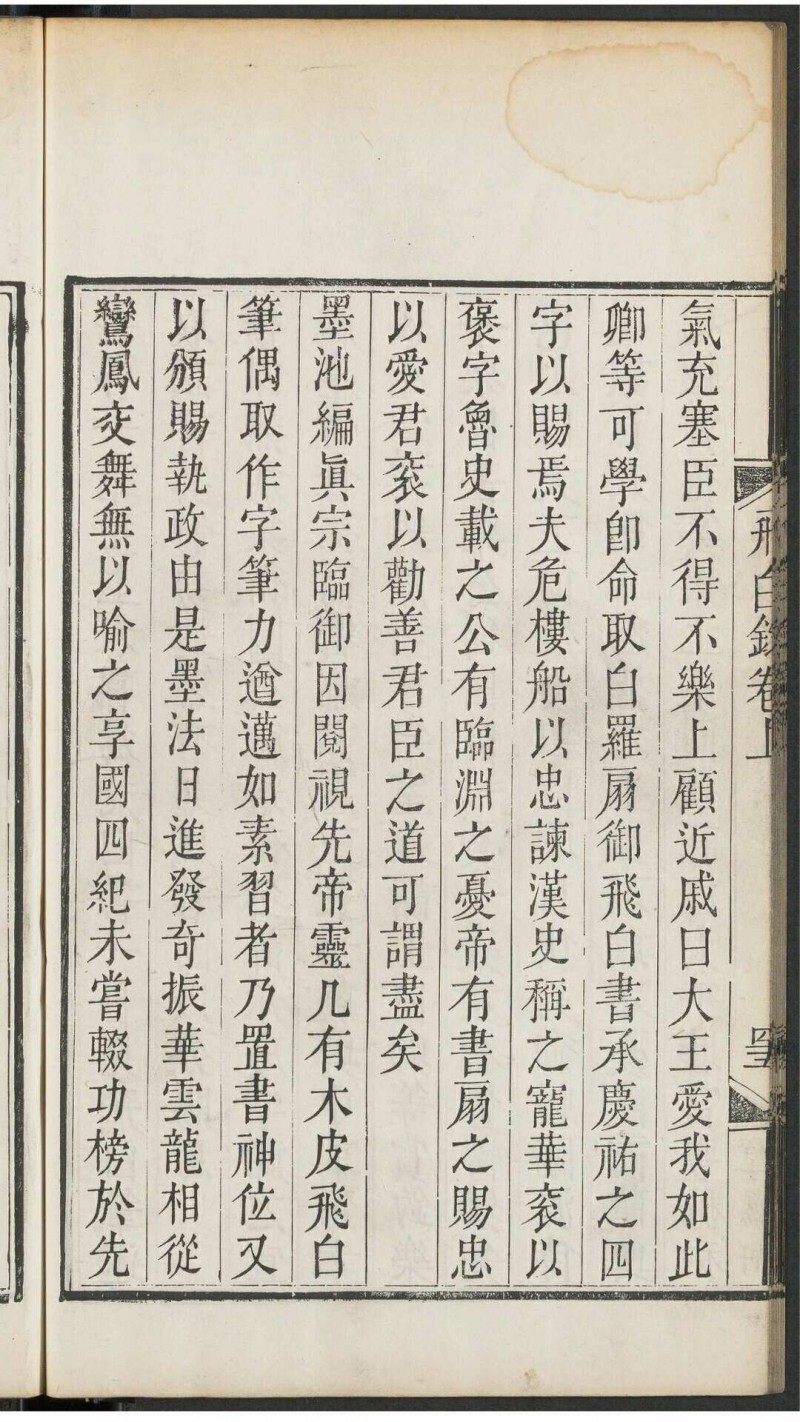 飛白錄卷上
氣充塞臣不得不樂上顧近戚曰大王愛我如此
卿等可學卽命取白羅扇御飛白書承慶祐之四
字以賜焉夫危樓船以忠諫漢史稱之寵華袞以
褒字魯史載之公有臨淵之憂帝有書扇之賜忠
以愛君袞以勸善君臣之道可謂盡矣
墨池編眞宗臨御因閱視先帝靈几有木皮飛白
筆偶取作字筆力遒邁如素習者乃置書神位又
以頒賜執政由是墨法日進發奇振華雲龍相從
鸞鳳交舞無以喻之享國四紀未嘗輟功榜於先